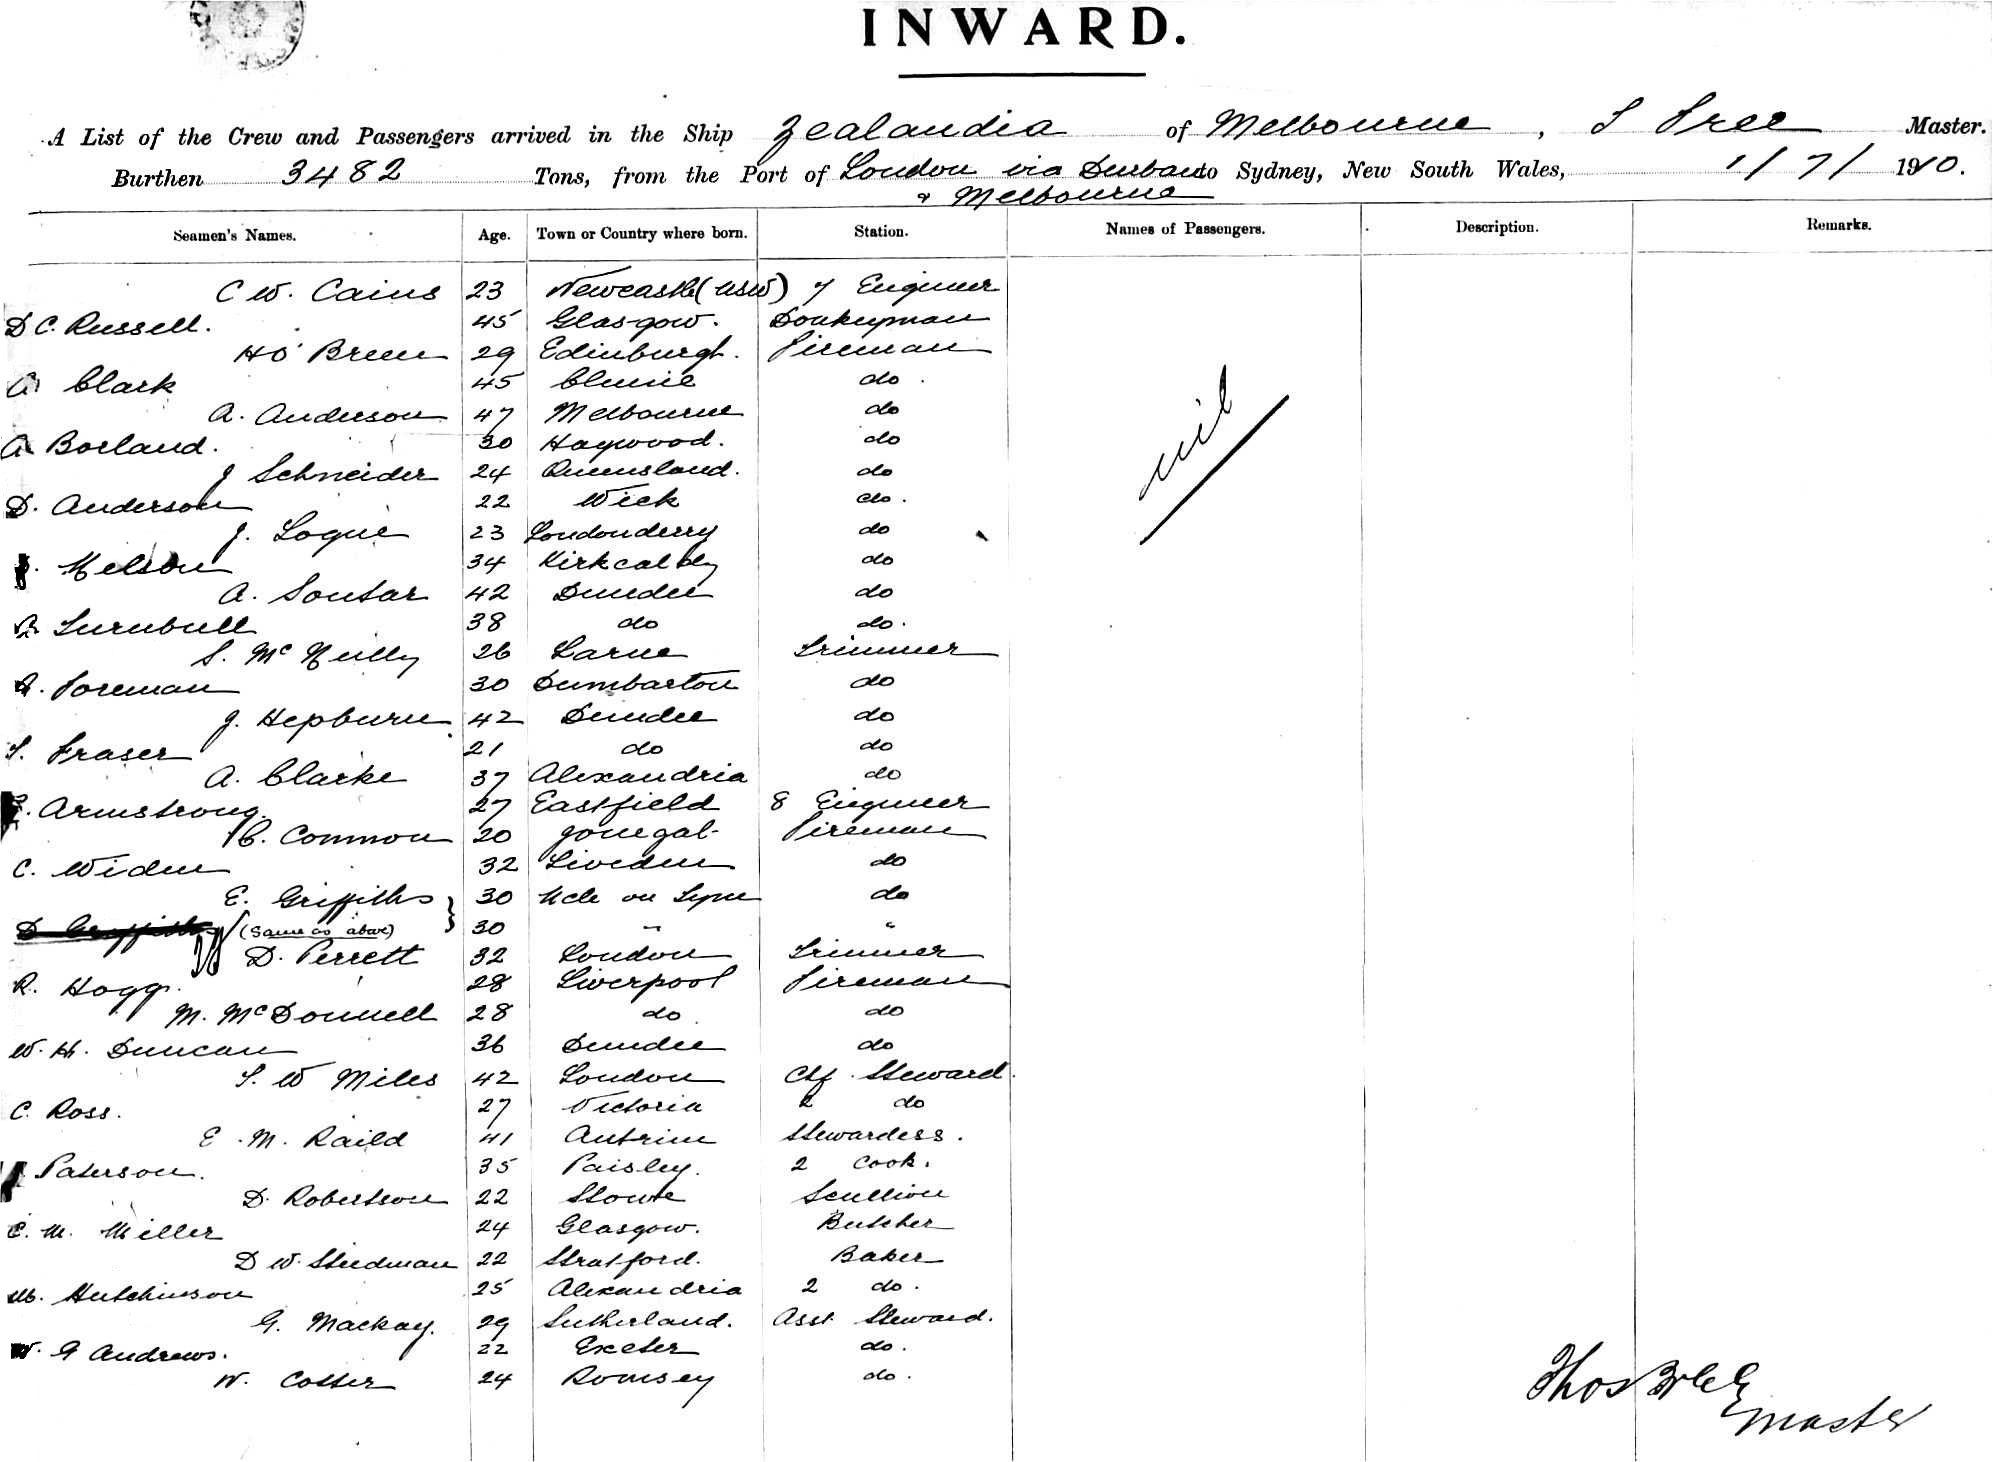 INWARD.
A List of the Crew and Passengers arrived in the Ship Zealandia of Melbourne, Master.
Burthen 3482 Tons, from the Port of London via Durban to Sydney, New South Wales, 1/7/1910.
& Melbourne
Seamen's Names. Age. Town or Country where born. Station. Names of Passengers. Description. Remarks.
C W. Cains 23 Newcastle (NSW) 7 Engineer
D C. Russell. 45 Glasgow. Donkeyman
H O'Brien 29 Edinburgh. Fireman
A Clark 45 Clunie do.
A. Anderson 47 Melbourne do
A Borland. 30 Haywood. do
J Schneider 24 Queensland. do
D. Anderson 22 Wick do.
J. Logue 23 Londonderry do
Nelson 34 Kirkcaldy do
A. Soutar 42 Dundee do
Turnbull 38 do do.
S. McNeilly 26 Larne Trimmer
Foreman 30 Dumbarton do
J. Hepburn 42 Dundee do
T. Fraser 21 do do
A. Clarke 37 Alexandria do
Armstrong. 27 Eastfield 8 Engineer
C. Common 20 Fireman
C. Widen 32 Sweden do
E. Griffiths 30 on Tyne do
D Griffiths (Same as above) 30 " "
D. Perrett 32 London Trimmer
R. Hogg. 28 Liverpool Fireman
M. McDonnell 28 do do
W. H. Duncan 36 Dundee do
T. W Miles 42 London Chf. Steward.
C. Ross. 27 Victoria 2 do
E. M. Raild 41 Antrim Stewardess.
Paterson. 35 Paisley. 2 Cook.
D. Robertson 22 Scullion
C. M. Miller 24 Glasgow. Butcher
D W. Steedman 22 Stratford. Baker
Hutchinson 25 Alexandria 2 do.
G. Mackay. 29 Sutherland. Asst Steward.
W. G Andrews. 22 Exeter do.
W. Cotter 24 Romsey do.
nil
Thos
Master